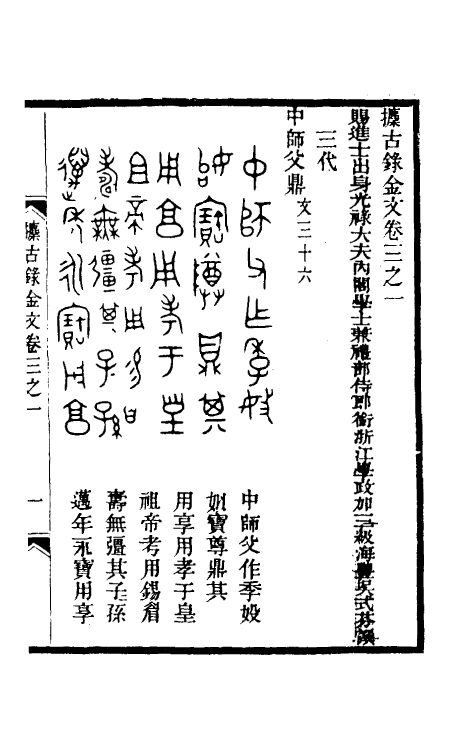 攗古錄金文卷三之一
賜進士出身光祿大夫內閣學士兼禮部侍郎銜浙江學政加三級海豐吳式芬譔
三代
中師父鼎文三十六
中師父作季㚸
姒寶尊鼎其
用享用孝于皇
祖帝考用錫眉
壽無彊其子孫
萬年永寶用享
攗古錄金文卷三之一
一